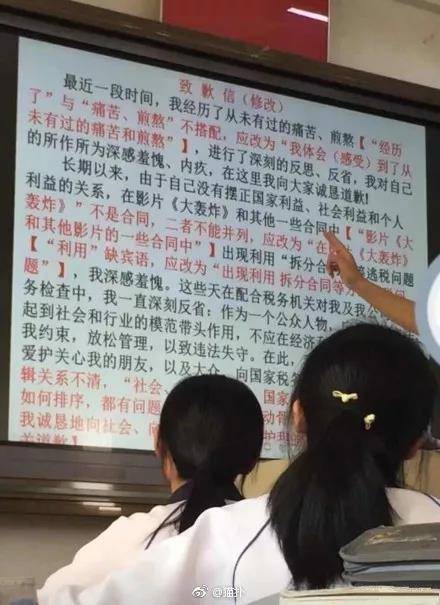 致 歉 信（修改）
最近一段时间，我经历了从未有过的痛苦、煎熬【“经历
了”与“痛苦、煎熬”不搭配，应改为“我体会（感受）到了从
未有过的痛苦和煎熬”】，进行了深刻的反思、反省，我对自己
的所作所为深感羞愧、内疚，在这里我向大家诚恳道歉！
长期以来，由于自己没有摆正国家利益、社会利益和个人
利益的关系，在影片《大轰炸》和其他一些合同中【“影片《大
轰炸》”不是合同，二者不能并列，应改为“在《大轰炸》
和其他影片的一些合同中”】出现利用“拆分合同 逃税问题
【“利用”缺宾语，应改为“出现利用 拆分合同等
题”】，我深感羞愧。这些天在配合税务机关对我及我公
务检查中，我一直深刻反省：作为一个公众人物，
起到社会和行业的模范带头作用，不应在经济
我约束，放松管理，以致违法失守。在此，
爱护关心我的朋友，以及大众 向国家税务
辑关系不清，“社会、 国家
如何排序，都有问题
我诚恳地向社会、向
道歉】
@猫扑